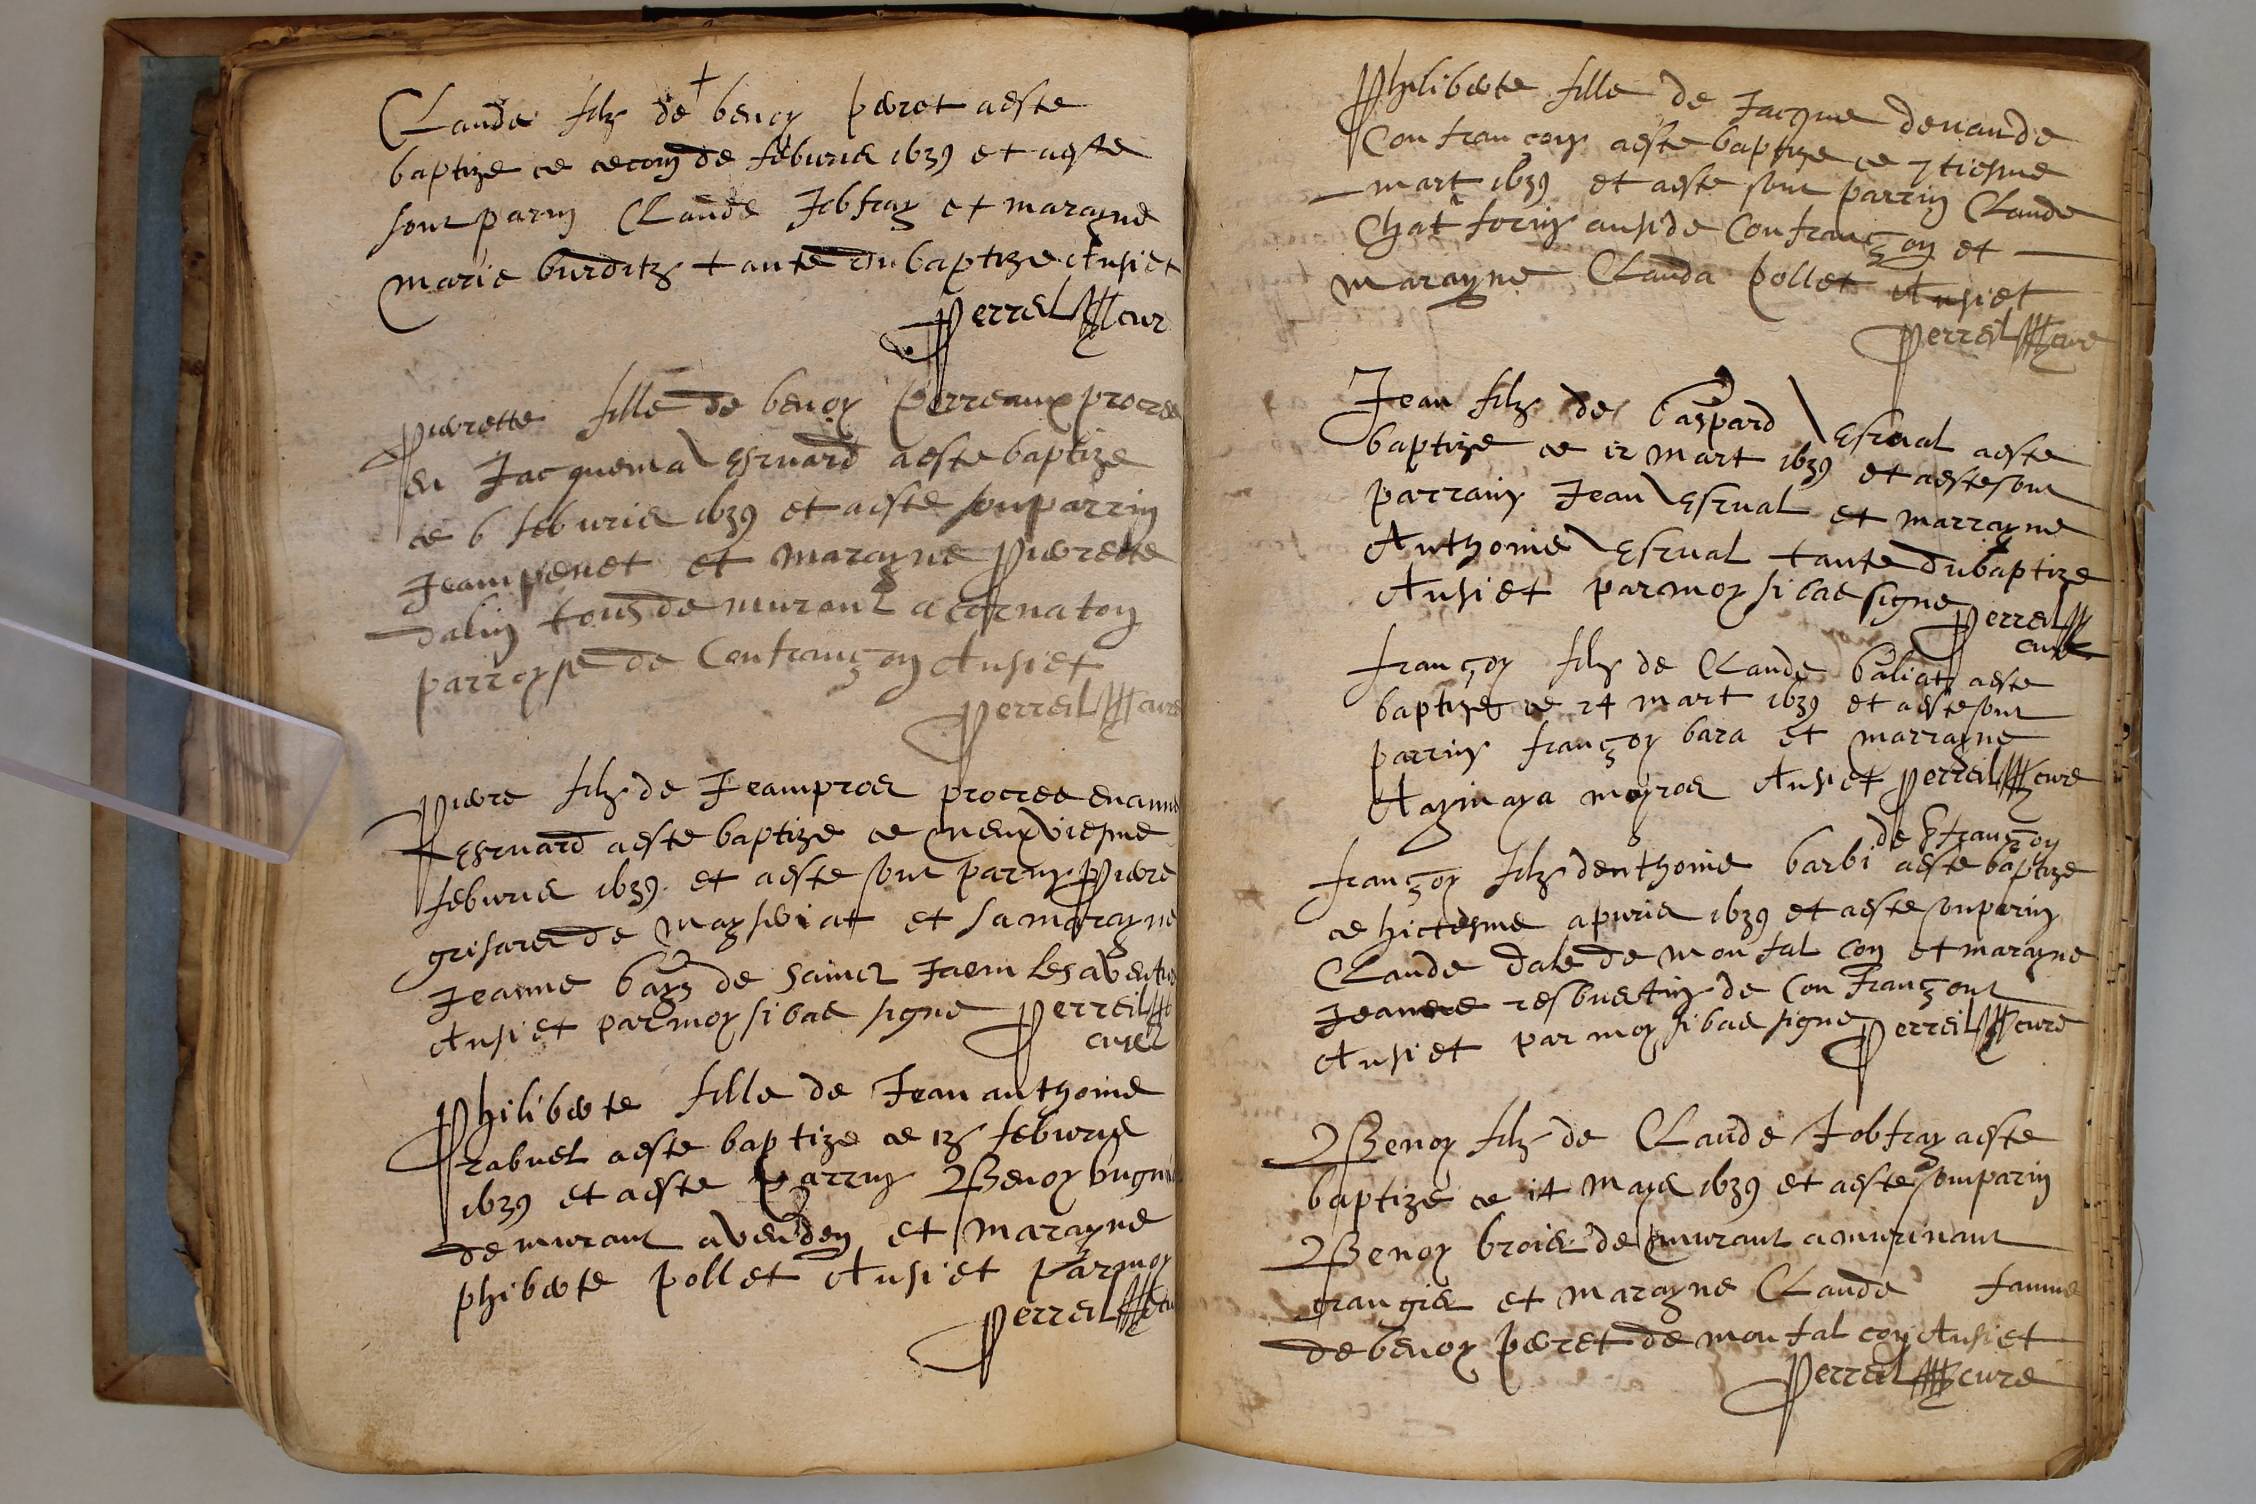 Claude filz de benoy peret aeste
baptize ce cecong de feburie 1639 et aeste
sont parin Claude Jobfray et marayne
marie burditz tante du baptize Ansi et
perreil cure
Pierrette fille de benoy perreaux procree
en Jacquema Esruard aeste baptize
ce 6 feburie 1639 et aeste son parrin
Jean penet et marayne pierrette
dalin tous de murant a cornaton
parroysse de Confrançon Ansi et
perreil cure
Pierre filz de Jean proe procree en anne
Esruard aeste baptize ce neuxviesme
feburie 1639 et aeste son parin pierre
grisare de mayseriat et sa marayne
Jeanne de Sainct Jaem les aventu
Ansi et par moy si bae signe perreil
cure
Philiberte fille de Jean anthoine
rabuel aeste baptize ce 13 feburie
1639 et aeste parrin Benoy bugni
demurant a venden et marayne
phiberte pollet Ansi et par moy
perreil cu
Philiberte fille de Jacque denande
Confrançoys aeste baptize ce 7 tiesme
mart 1639 et aeste sont parrin Claude
Chat ausi de Confrançon et
marayne Clauda pollet Ansi et
perreil cure
Jean filz de gaspard Esrual aeste
baptize ce 12 mart 1639 et aeste sont
parrain Jean Esrual et marrayne
Anthoine Esrual tante du baptize
Ansi et par moy si bae signe perreil
cure
françoy filz de Claude baliat aeste
baptize ce 24 mart 1639 et aeste sont
parrin françoy bara et marrayne
Aymaya moyroe Ansi et perreil cure
de Cfrançon
françoy filz denthoine barbi aeste baptize
ce hictesme apurie 1639 et aeste son parin
Claude dale de montalcon et marayne
Jeanne resbuetin de Confrançont
Ansi et par moy si bae signe perreil cure
Benoy filz de Claude Jobfray aeste
baptize ce 14 maye 1639 et aeste son parin
Benoy broie demurant a murinant
grangie et marayne Claude famme
de benoy peret de montalcon Ansi et
perreil cure